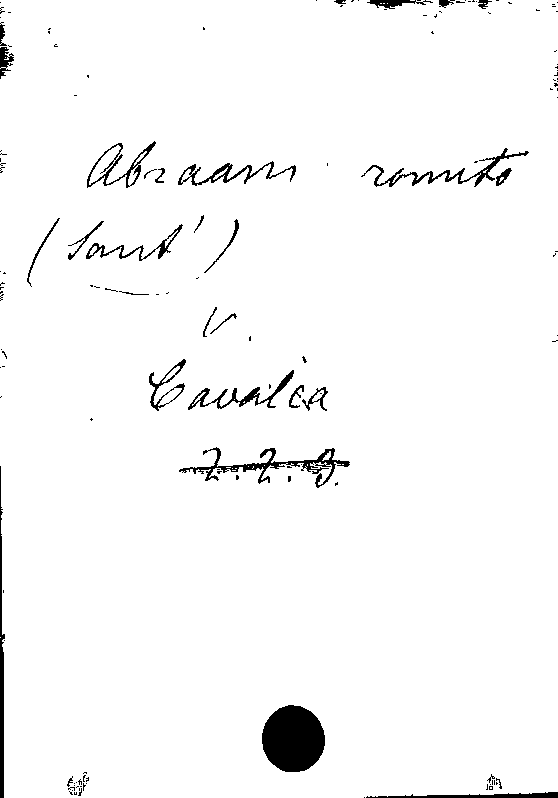 Abraam romito
(Sant')
v.
Cavalca
2.2.3.